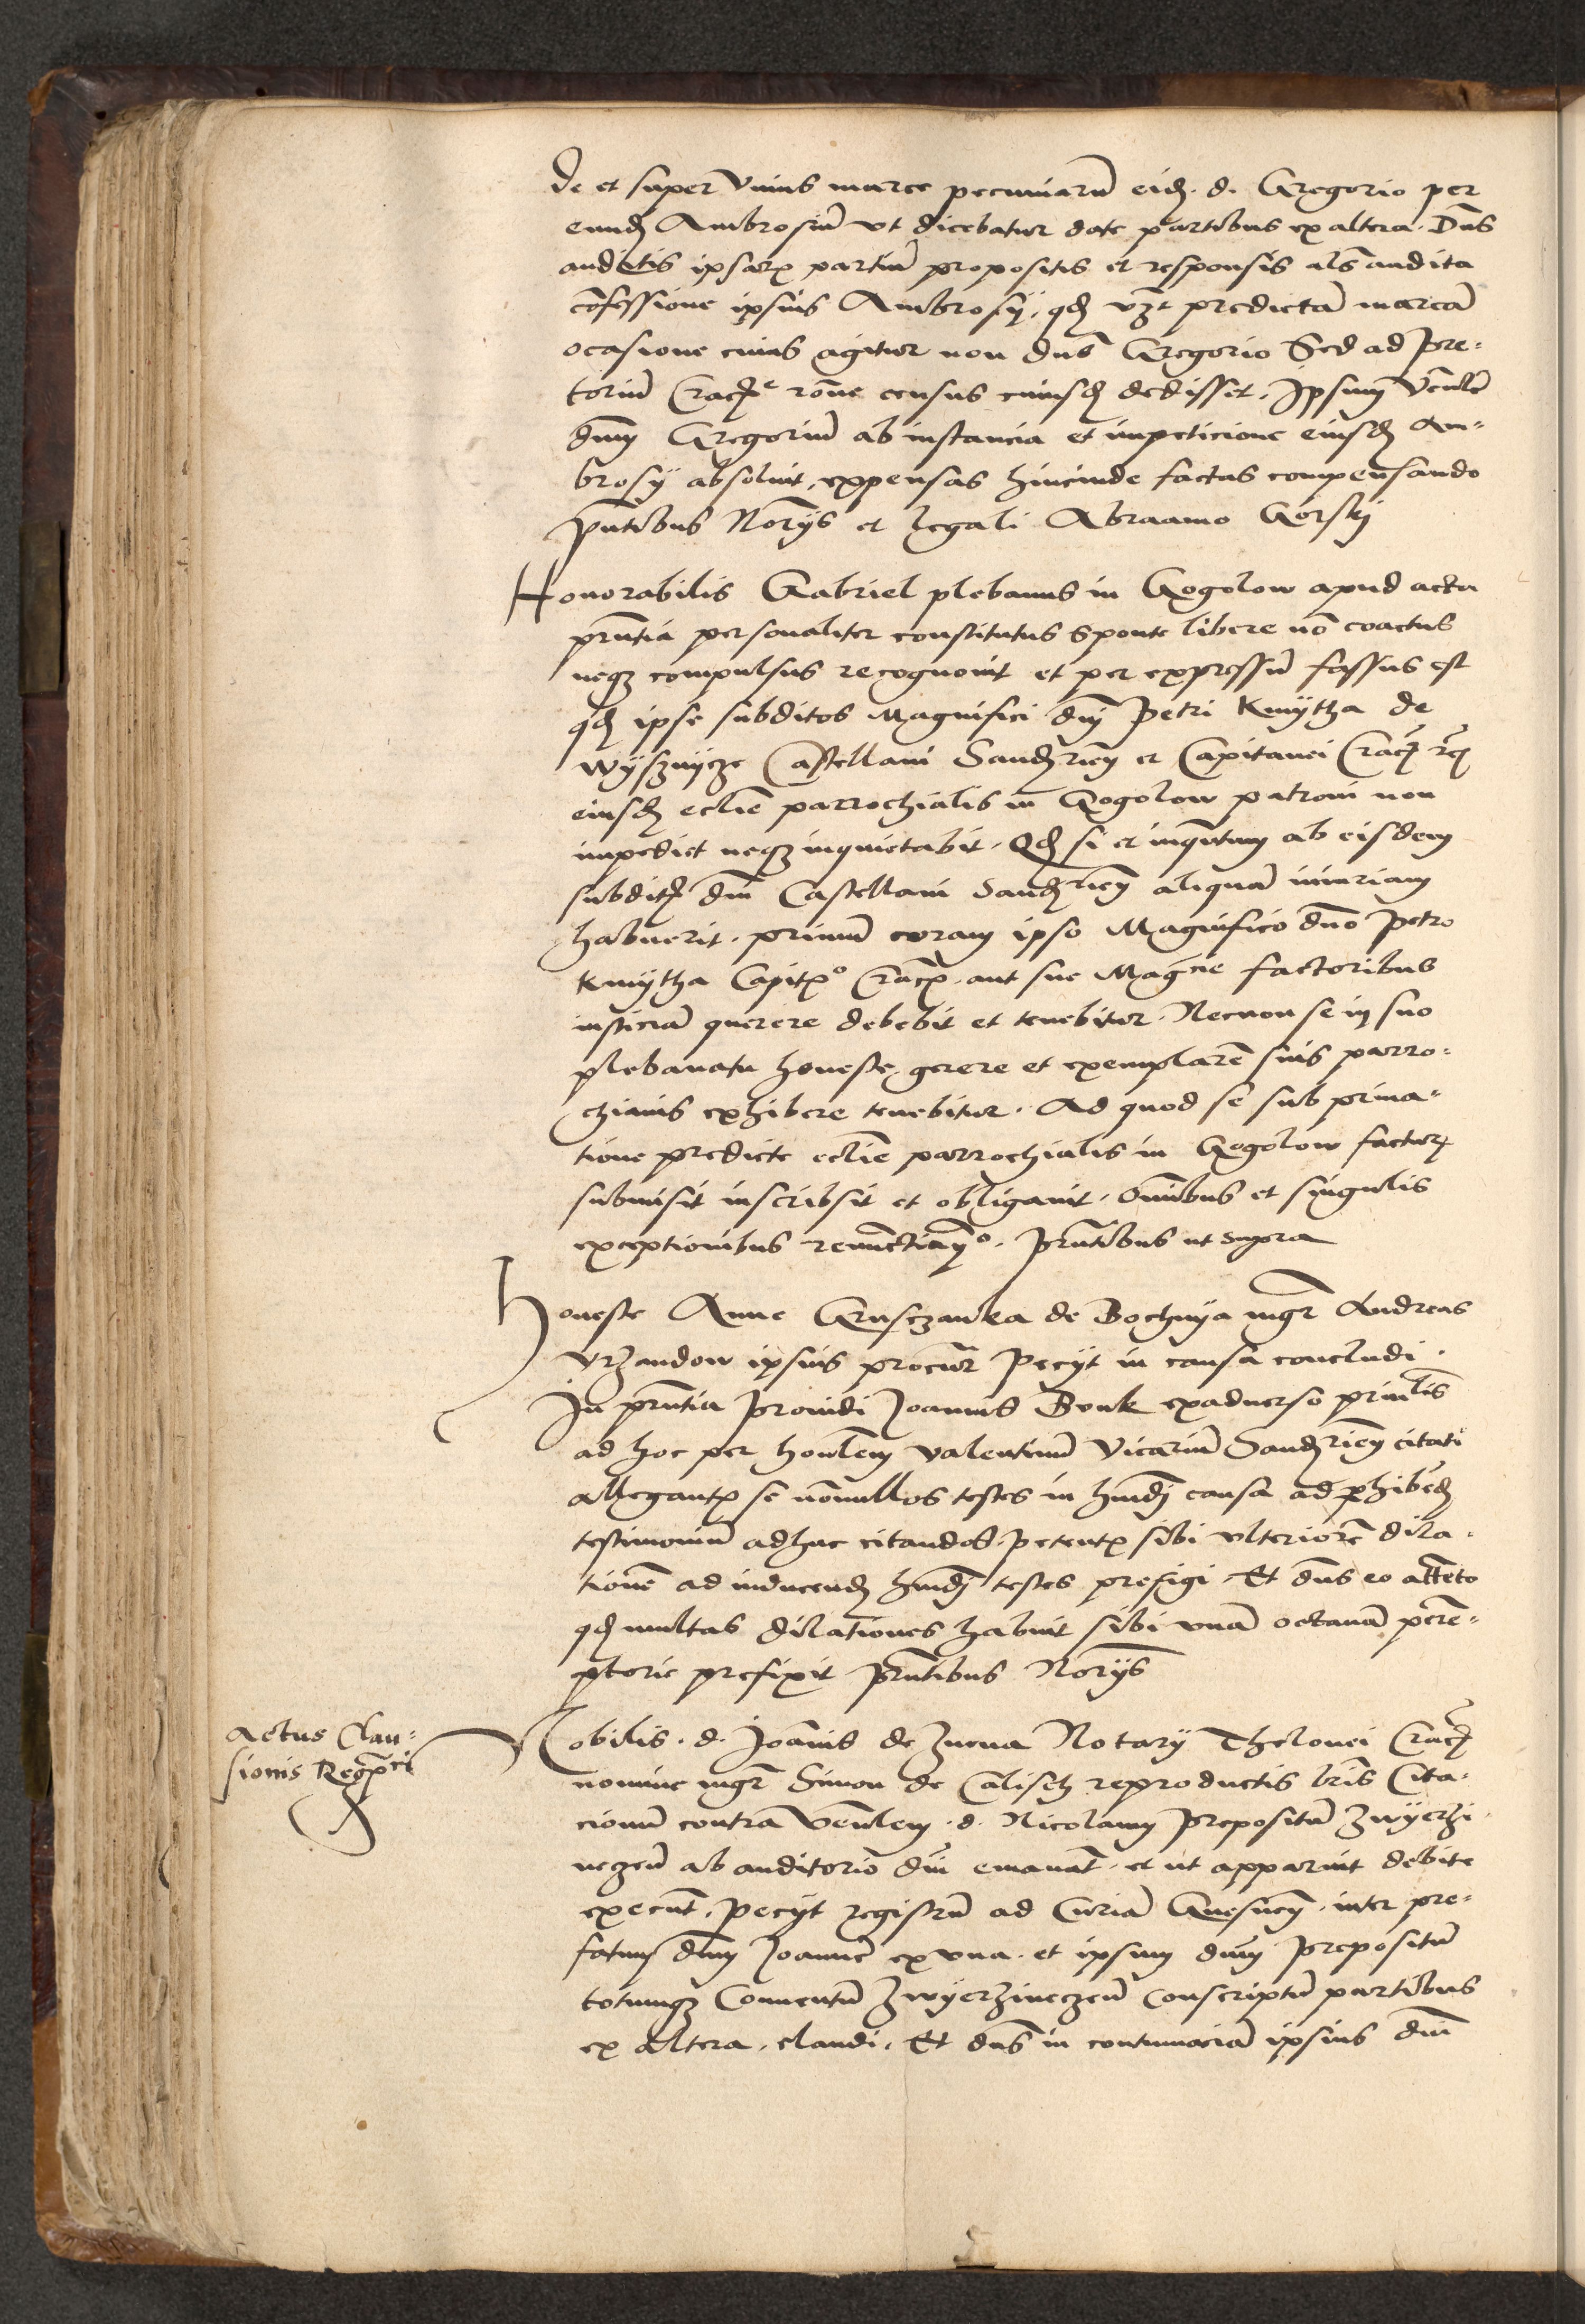 de et super Vnius marce pecuniarū eid. d. Gregorio per
eund Ambrosiū vt dicebatur date partibus ex altera. Dns
auditis ipsarū partiū propositis et responsis als audita
cōfessione ipsius Ambrosÿ, qd vz predictā marcā
ocasione cuius agitur non dno Gregorio Sed ad Pre-
toriū Crac rōne census cuiusd dedisset, Ipsum Venlē
dnm Gregoriū ab instancia et impeticione eiusd Am-
brosÿ absoluit, expensas hincinde factas compensando
Pntibus Norÿs et legali Abraamo Gorskj
Honorabilis Gabriel plebanus in Gogolow apud acta
prntia personaliter constitutus sponte libere nō coactus
neqz compulsus recognouit et per expressū fassus est
qd ipse subditos Magnifici dnj Petri Kmÿtha de
Wÿsznÿcze Castellani Sandrien et Capitanei Crac
eiusd ecclie parrochialis in Gogolow patroni non
impediet neqz inquietabit. Qd si et inqntum ab eisdem
subdit dni Castellani Sandrien aliquā iniuriam
habuerit. primū coram ipso Magnifico dno Petro
Kmÿtha Capit Crac. aut sue Magcie factoribus
iusticiā querere debebit et tenebitur. Necnon se in suo
plebanatu honeste gerere et exemplarē suis parro-
chianis exhibere tenebitur. Ad quod se sub priua-
tione predicte ecclie parrochialis in Gogolow factur
submisit inscribsit et obligauit. Omibus et singulis
exceptionibus renunctian. Prntibus ut supra
Honeste Anne Grusczanka de Bochnÿa mgr Andreas
Vrzandow ipsius procur Pecÿt in causa concludi.
In prntia Prouidi Joannis Bonk exaduerso prinlis
ad hoc per honlem valentinū Vicariū Sandrien citati
allegant se nōnullos testes in hmdj causa ad phibed
testimoniū adhuc citandos. Petent sibi vlteriorē dila-
tionē ad inducend hmdj testes prefigi. Et dns eo attēto
qd multas dilationes habuit sibi vnā octauā perē-
ptorie prefixit Prntibus Norÿs
Actus Clau-
sionis Regri
Nobilis. d. Joānis de Znena Notarÿ Thelonei Crac
nomine mgr Simon de Calisch reproductis lris Cita-
cionū contra Venlem. d. Nicolaum Prepositū Zwÿerzi-
neczen ab auditorio dni emanat. et ut apparuit debite
execut. Pecÿt registrū ad Curiā Gnesnen. inter pre-
fatum dnm Joannē ex vna. et ipsum dnm Prepositū
totumqz Conuentū Zwÿerzineczen Conscriptū partibus
ex altera. claudi. Et dns in contumaciā ipsius dni